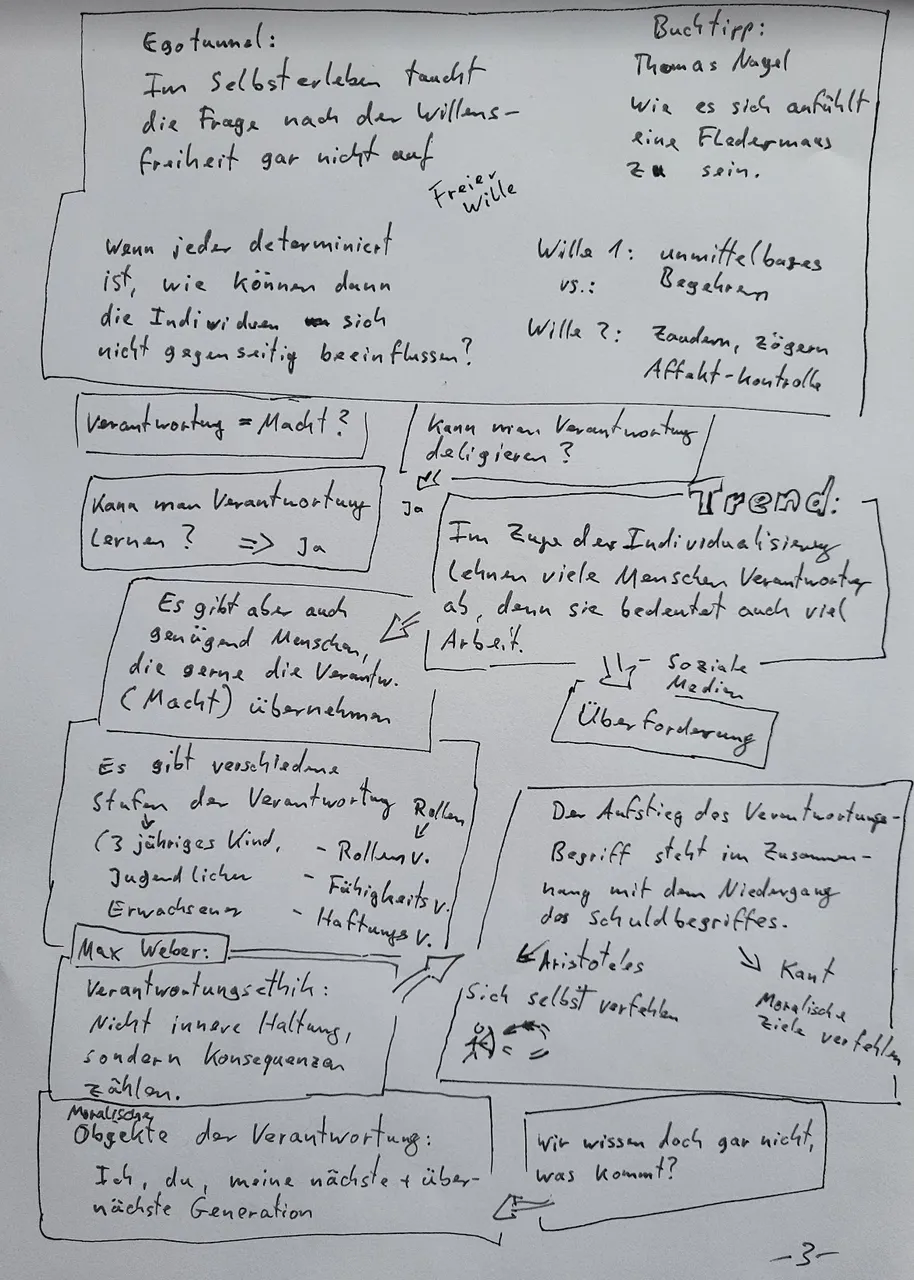 Egotunnel:
Im Selbsterleben taucht
die Frage nach der Willens-
freiheit gar nicht auf
Buchtipp:
Thomas Nagel
Wie es sich anfühlt
eine Fledermaus
zu sein.
Freier
Wille
Wenn jeder determiniert
ist, wie können dann
die Individuen sich
nicht gegenseitig beeinflussen?
Wille 1: unmittelbares
vs.: Begehren
Wille 2: Zaudern, zögern
Affekt-kontrolle
Verantwortung = Macht?
Kann man Verantwortung
deligieren?
Ja
Kann man Verantwortung
Lernen? => Ja
Trend:
Im Zuge der Individualisierung
lehnen viele Menschen Verantwortung
ab, denn sie bedeutet auch viel
Arbeit.
Es gibt aber auch
genügend Menschen,
die gerne die Verantw.
(Macht) übernehmen
Soziale
Medien
Überforderung
Es gibt verschiedene
Stufen der Verantwortung
(3 jähriges Kind,
Jugendlicher
Erwachsener
Rollen
- Rollen v.
- Fähigkeits v.
- Haftungs v.
Der Aufstieg des Verantwortungs-
Begriff steht im Zusammen-
hang mit dem Niedergang
des Schuldbegriffes.
Aristoteles
Sich selbst verfehlen
Kant
Moralische
Ziele verfehlen
Max Weber:
Verantwortungsethik:
Nicht innere Haltung,
sondern Konsequenzen
zählen.
Moralische
Objekte der Verantwortung:
Ich, du, meine nächste + über-
nächste Generation
Wir wissen doch gar nicht,
was kommt?
-3-